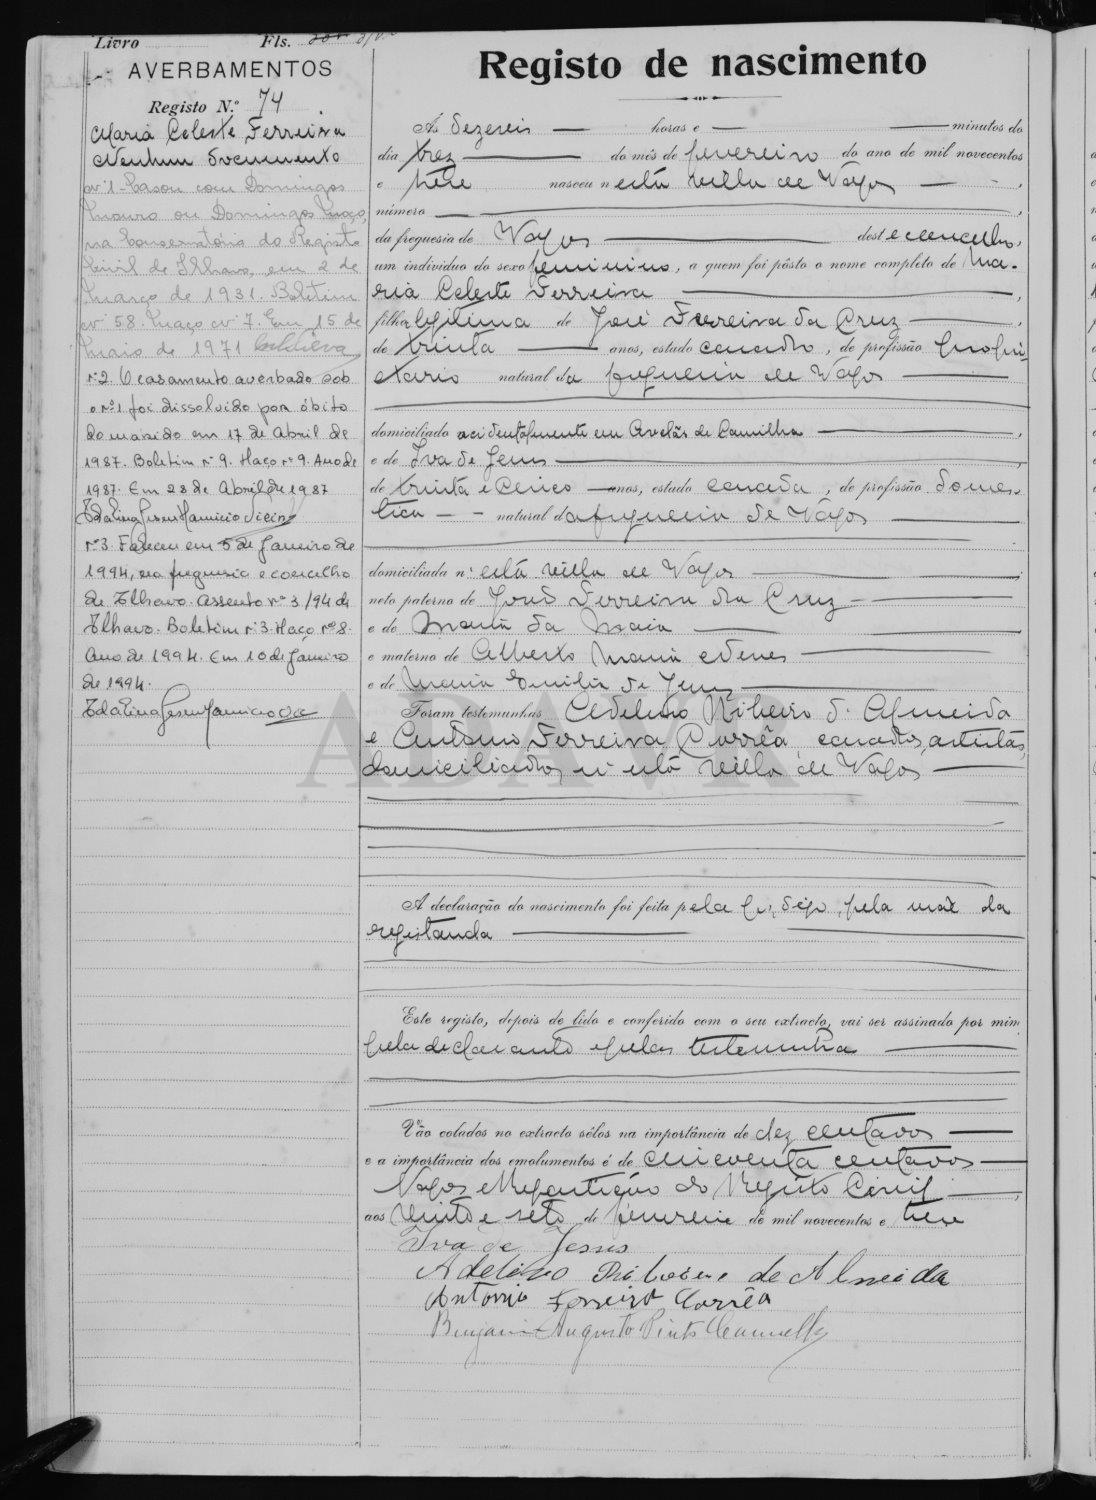 Livro Fls.
AVERBAMENTOS
Registo N.º 74
Maria Celeste Ferreira
Nenhum documento
nº1- Casou com Domingos
Mouro ou Domingos
na Conservatória do Registo
Civil de Ilhavo, em 2 de
março de 1931. Boletim
nº 58. Maço nº 7. Em 15 de
maio de 1971
nº2. O casamento averbado sob
o nº1 foi dissolvido por óbito
do marido em 17 de Abril de
1987. Boletim nº 9. Maço nº 9. Ano de
1987. Em 28 de Abril de 1987
nº3. Faleceu em 5 de Janeiro de
1994, na freguesia e concelho
de Ilhavo. Assento nº 3/94 de
Ilhavo. Boletim nº3. Maço nº8.
Ano de 1994. Em 10 de Janeiro
de 1994.
Registo de nascimento
Ás dezeseis horas e minutos do
dia trez do mês de fevereiro do ano de mil novecentos
e treze nasceu n esta villa de Vagos
número
da freguesia de Vagos deste concelho,
um indivíduo do sexo feminino, a quem foi pôsto o nome completo de Ma-
ria Celeste Ferreira
filha legitima de José Ferreira da Cruz
de trinta anos, estado casado, de profissão propri-
etario natural da freguesia de Vagos
domiciliado acidentalmente em Avelãs de Caminha
e de Iva de Jesus
de trinta e cinco anos, estado casada, de profissão domes-
tica natural da freguesia de Vagos
domiciliada n' esta villa de Vagos
neto paterno de José Ferreira da Cruz
e de Maria da Maia
e materno de Alberto Maria
e de Maria Emilia de Jesus
Foram testemunhas Adelino Ribeiro d' Almeida
e Antonio Ferreira Corrêa, casados, artistas,
domiciliados n' esta villa de Vagos
ADAVR
A declaração do nascimento foi feita pela digo, pela mãe da
registanda
Este registo, depois de lido e conferido com o seu extracto, vai ser assinado por mim
pela declarante e pelas testemunhas
Vão colados no extracto sêlos na importância de dez centavos
e a importância dos emolumentos é de cincoenta centavos
Vagos e Repartição do Registo Civil
aos vinte e sete de fevereiro de mil novecentos e treze
Iva de Jesus
Adelino Ribeiro de Almeida
Antonio Ferreira Corrêa
Benjamin Augusto Pinto